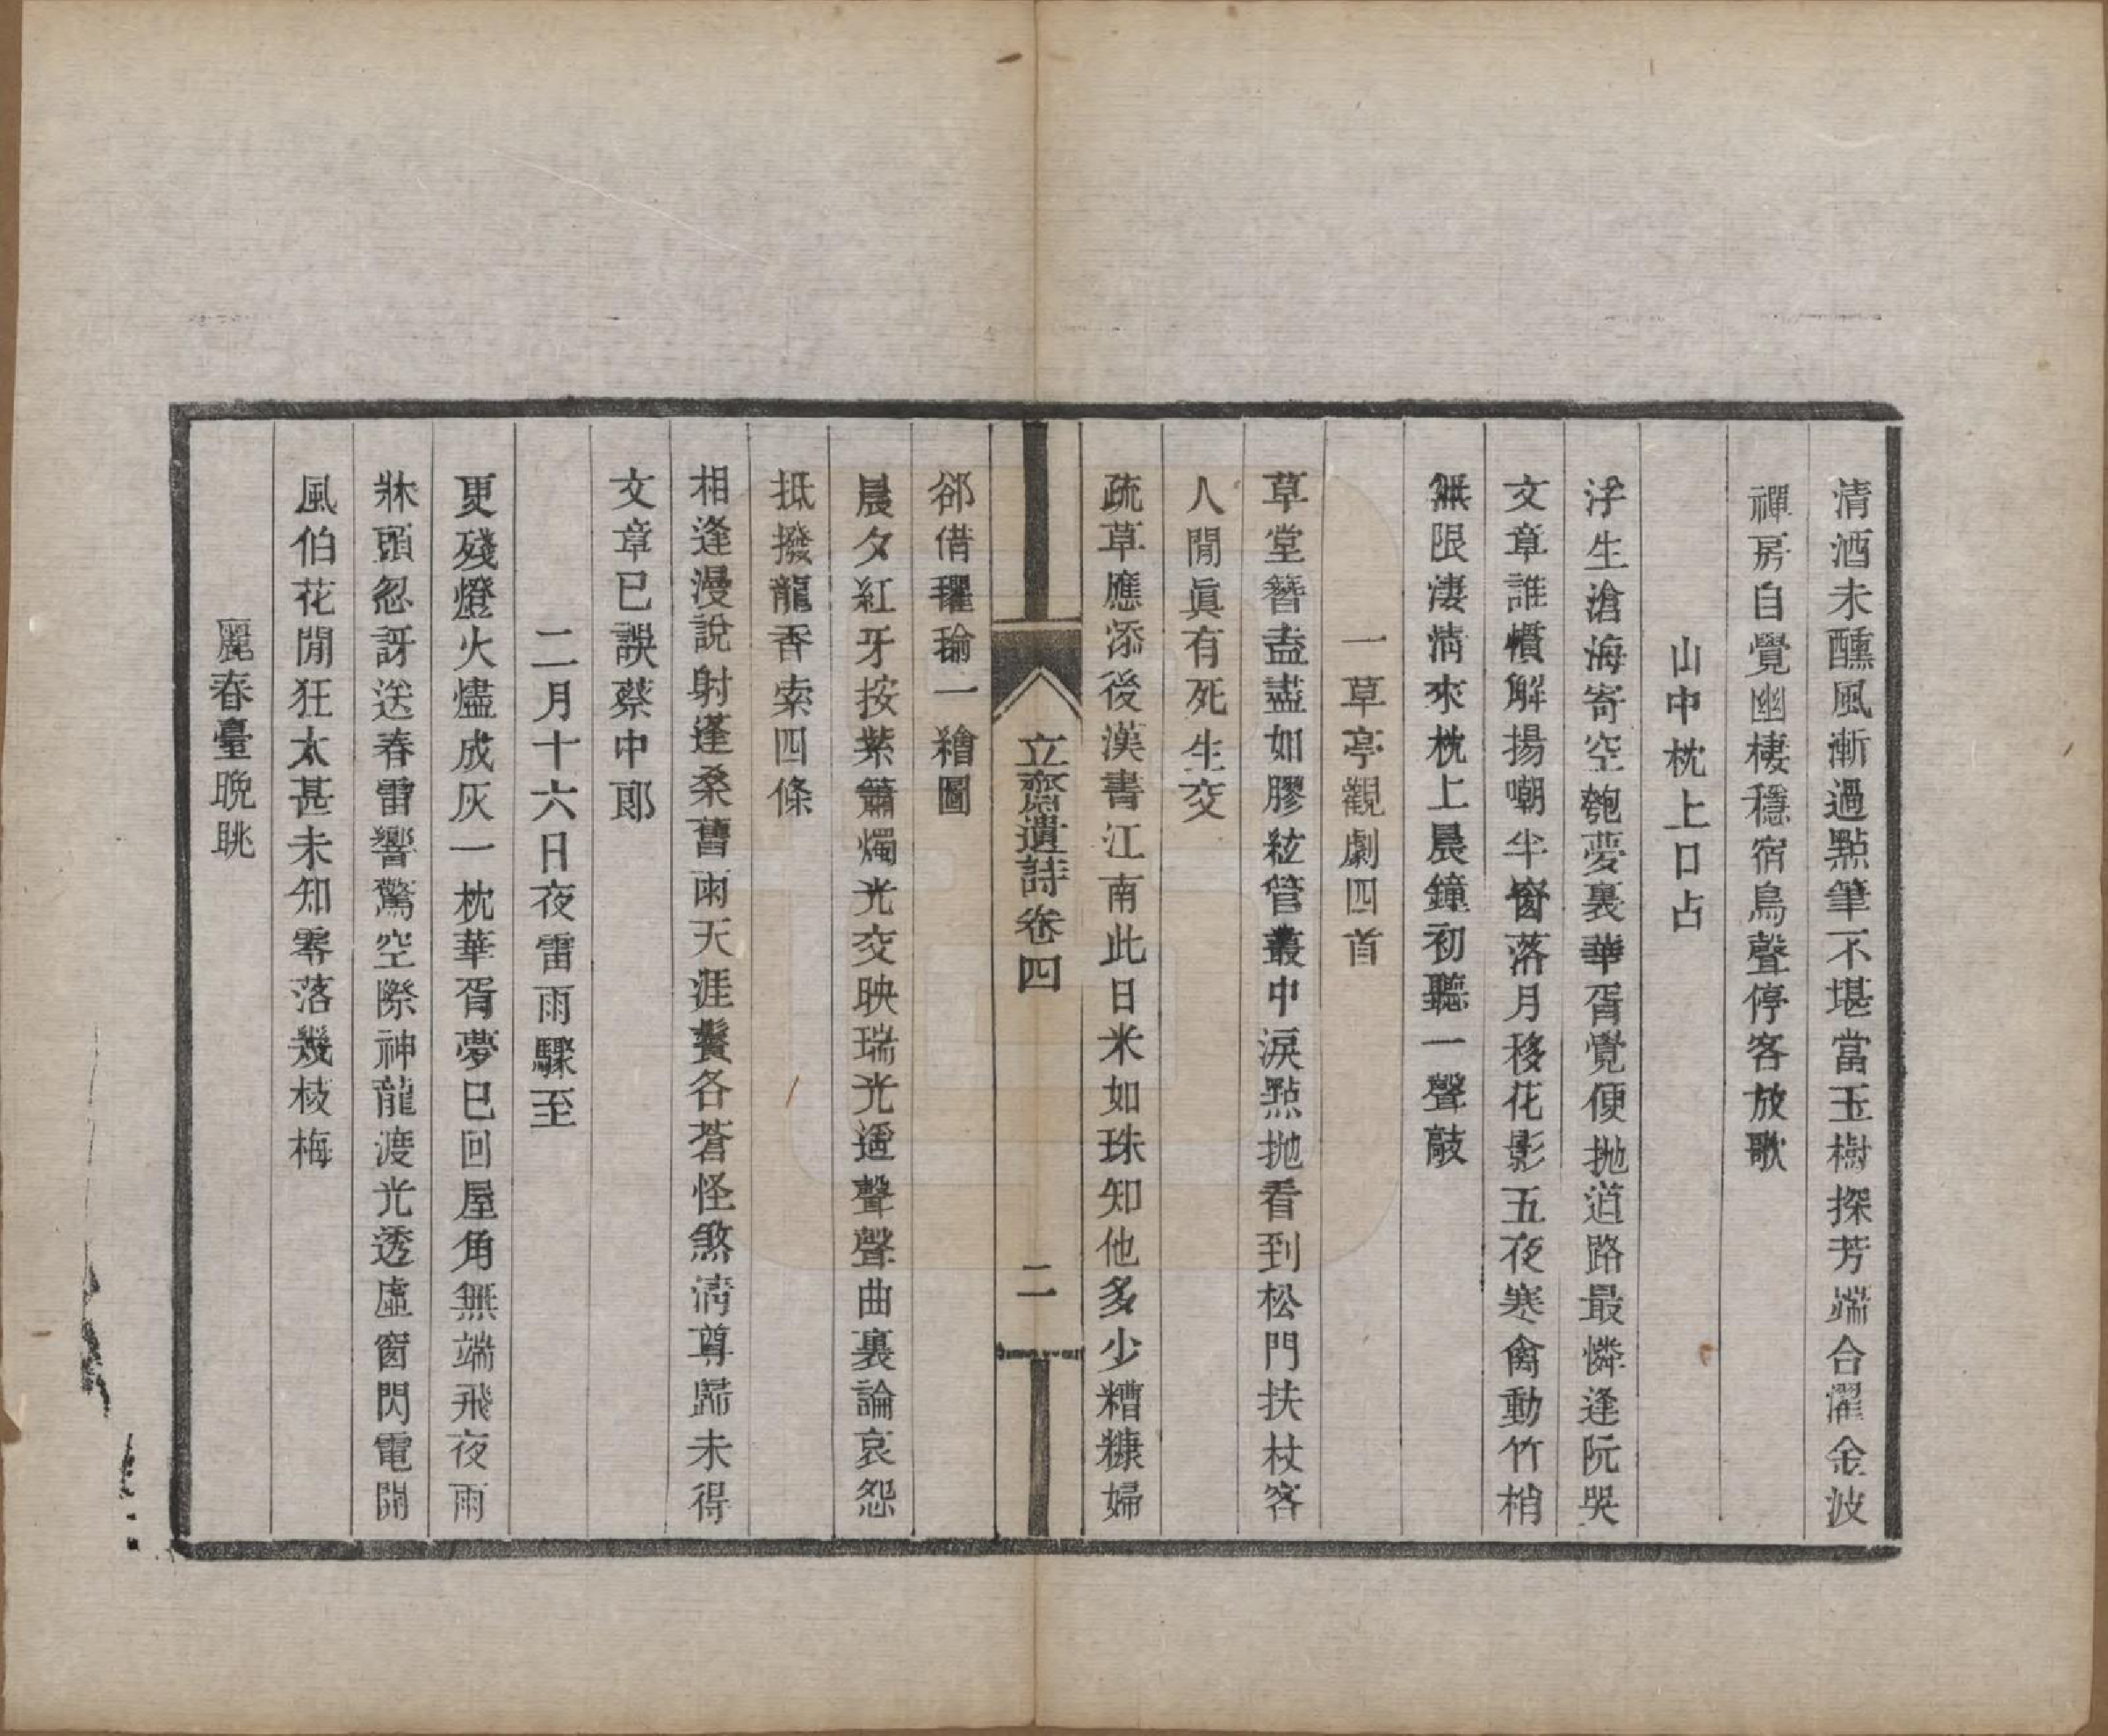 清酒未醺風漸過點筆不堪當玉樹探芳端合濯金波
禪房自覺幽棲穩宿鳥聲停客放歌
山中枕上口占
浮生滄海寄空匏夢裏華胥覺便拋道路最憐逢阮哭
文章誰慣解揚嘲半窗落月移花影五夜寒禽動竹梢
無限淒情來枕上晨鐘初聽一聲敲
一草亭觀劇四首
草堂簪盍盡如膠絃管叢中淚點拋看到松門扶杖客
人閒眞有死生交
疏草應添後漢書江南此日米如珠知他多少糟糠婦
立齋遺詩卷四
二
郤借瓘瑜一繪圖
晨夕紅牙按紫簫燭光交映瑞光遙聲聲曲裏論哀怨
抵撥龍香索四條
相逢漫說射蓬桑舊雨天涯鬢各蒼怪煞清尊歸未得
文章已誤蔡中郎
二月十六日夜雷雨驟至
更殘燈火燼成灰一枕華胥夢已回屋角無端飛夜雨
牀頭忽訝送春雷響驚空際神龍渡光透虛窗閃電開
風伯花閒狂太甚未知零落幾枝梅
麗春臺晚眺